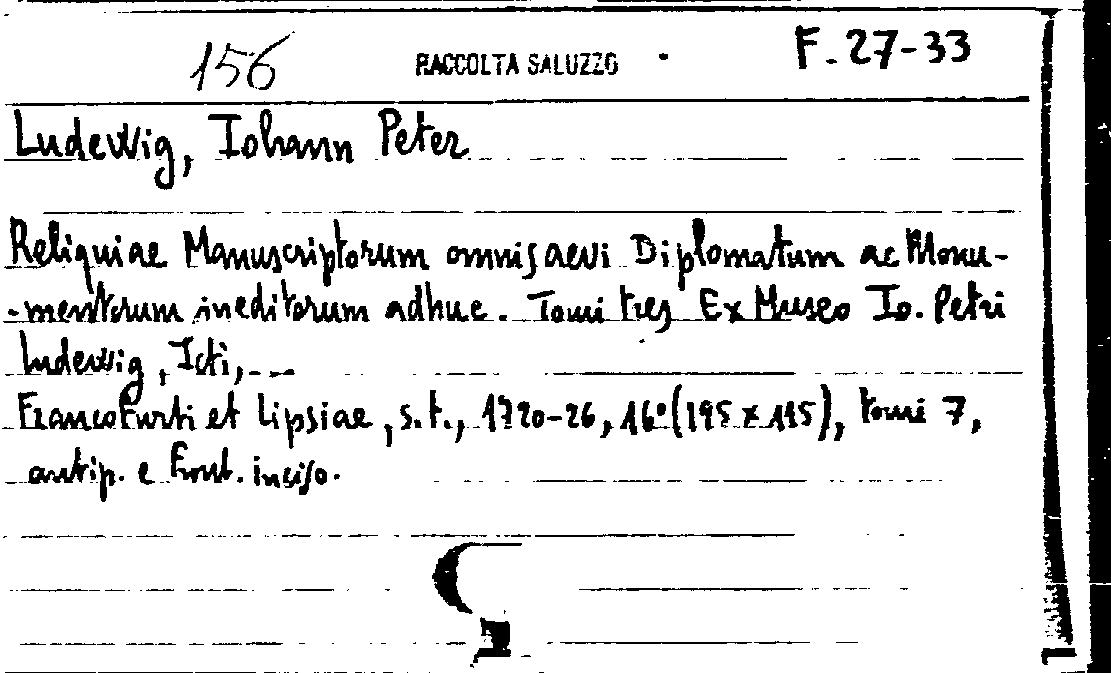 156 RACCOLTA SALUZZO F. 27-33
Ludewig, Iohann Peter
Reliquiae Manuscriptorum omnis aevi Diplomatum ac Monu-
-mentorum ineditorum adhuc. Tomi tres Ex Museo Io. Petri
Ludewig, Icti,...
Francofurti et Lipsiae, s.t., 1720-26, 16º (195 x 115), tomi 7,
antip. e front. inciso.